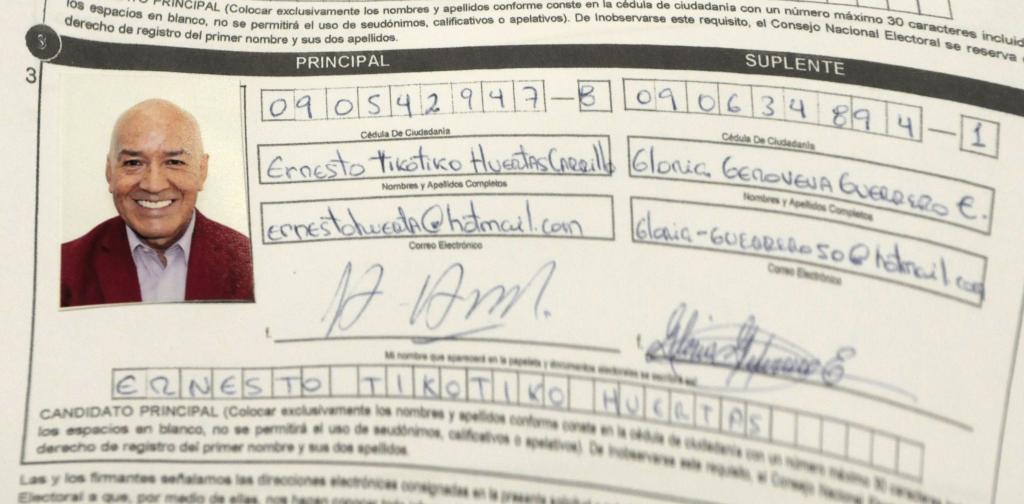 PRINCIPAL (Colocar exclusivamente los nombres y apellidos conforme conste en la cédula de ciudadanía con un número máximo 30 caracteres incluid
los espacios en blanco, no se permitirá el uso de seudónimos, calificativos o apelativos). De Inobservarse este requisito, el Consejo Nacional Electoral se reserva
derecho de registro del primer nombre y sus dos apellidos.
PRINCIPAL SUPLENTE
3
090542947-8 090634894-1
Cédula De Ciudadanía Cédula De Ciudadanía
Ernesto Tikotiko Huertas Carrillo Gloria Genoveva Guerrero E.
Nombres y Apellidos Completos Nombres y Apellidos Completos
ernestohuerta@hotmail.com Gloria-Guerrero50@hotmail.com
Correo Electrónico Correo Electrónico
f. f. Gloria Guerrero E
Mi nombre que aparecerá en la papeleta y documentos electorales se escribirá así:
ERNESTO TIKOTIKO HUERTAS
CANDIDATO PRINCIPAL (Colocar exclusivamente los nombres y apellidos conforme conste en la cédula de ciudadanía con un número máximo 30 caracteres
los espacios en blanco, no se permitirá el uso de seudónimos, calificativos o apelativos). De Inobservarse este requisito, el Consejo Nacional
derecho de registro del primer nombre y sus dos apellidos.
Las y los firmantes señalamos las direcciones electrónicas consignadas en la presente
Electoral a que, por medio de ellas, nos hagan conocer